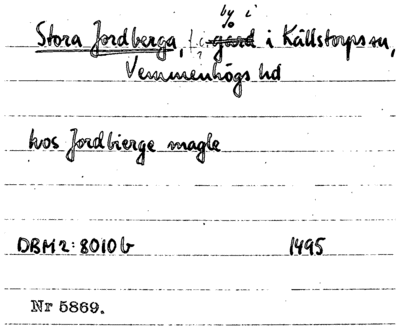 by i
Stora Jordberga, gård i Källstorps sn,
Vemmenhögs hd
hos Jordbierge magle
DBM 2: 8010 b 1495
Nr 5869.